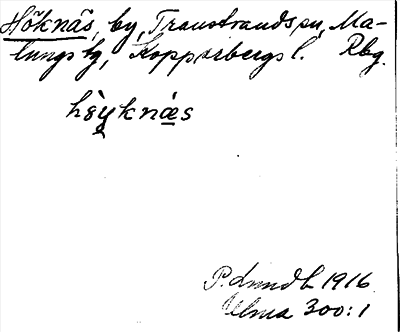 Höknäs, by, Transtrands sn, Ma-
lungs tg, Kopparbergs l. Rbg.
hèyknæs
P. Lundh 1916
Ulma 300:1